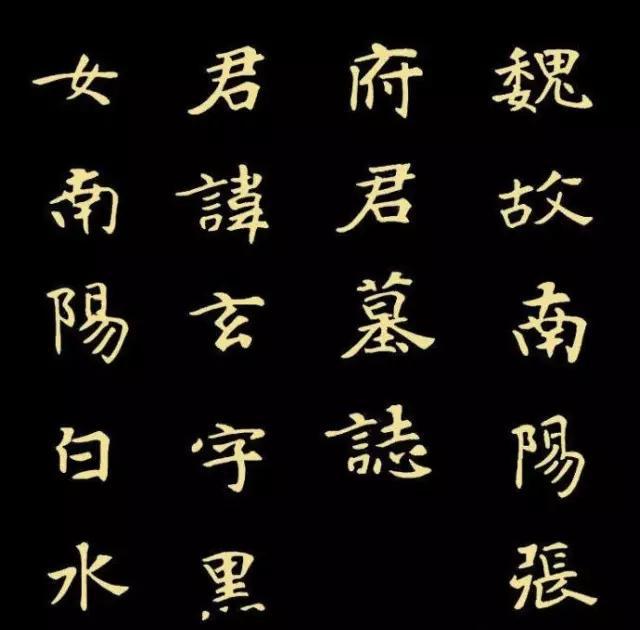 魏故南陽張
府君墓誌
君諱玄字黑
女南陽白水